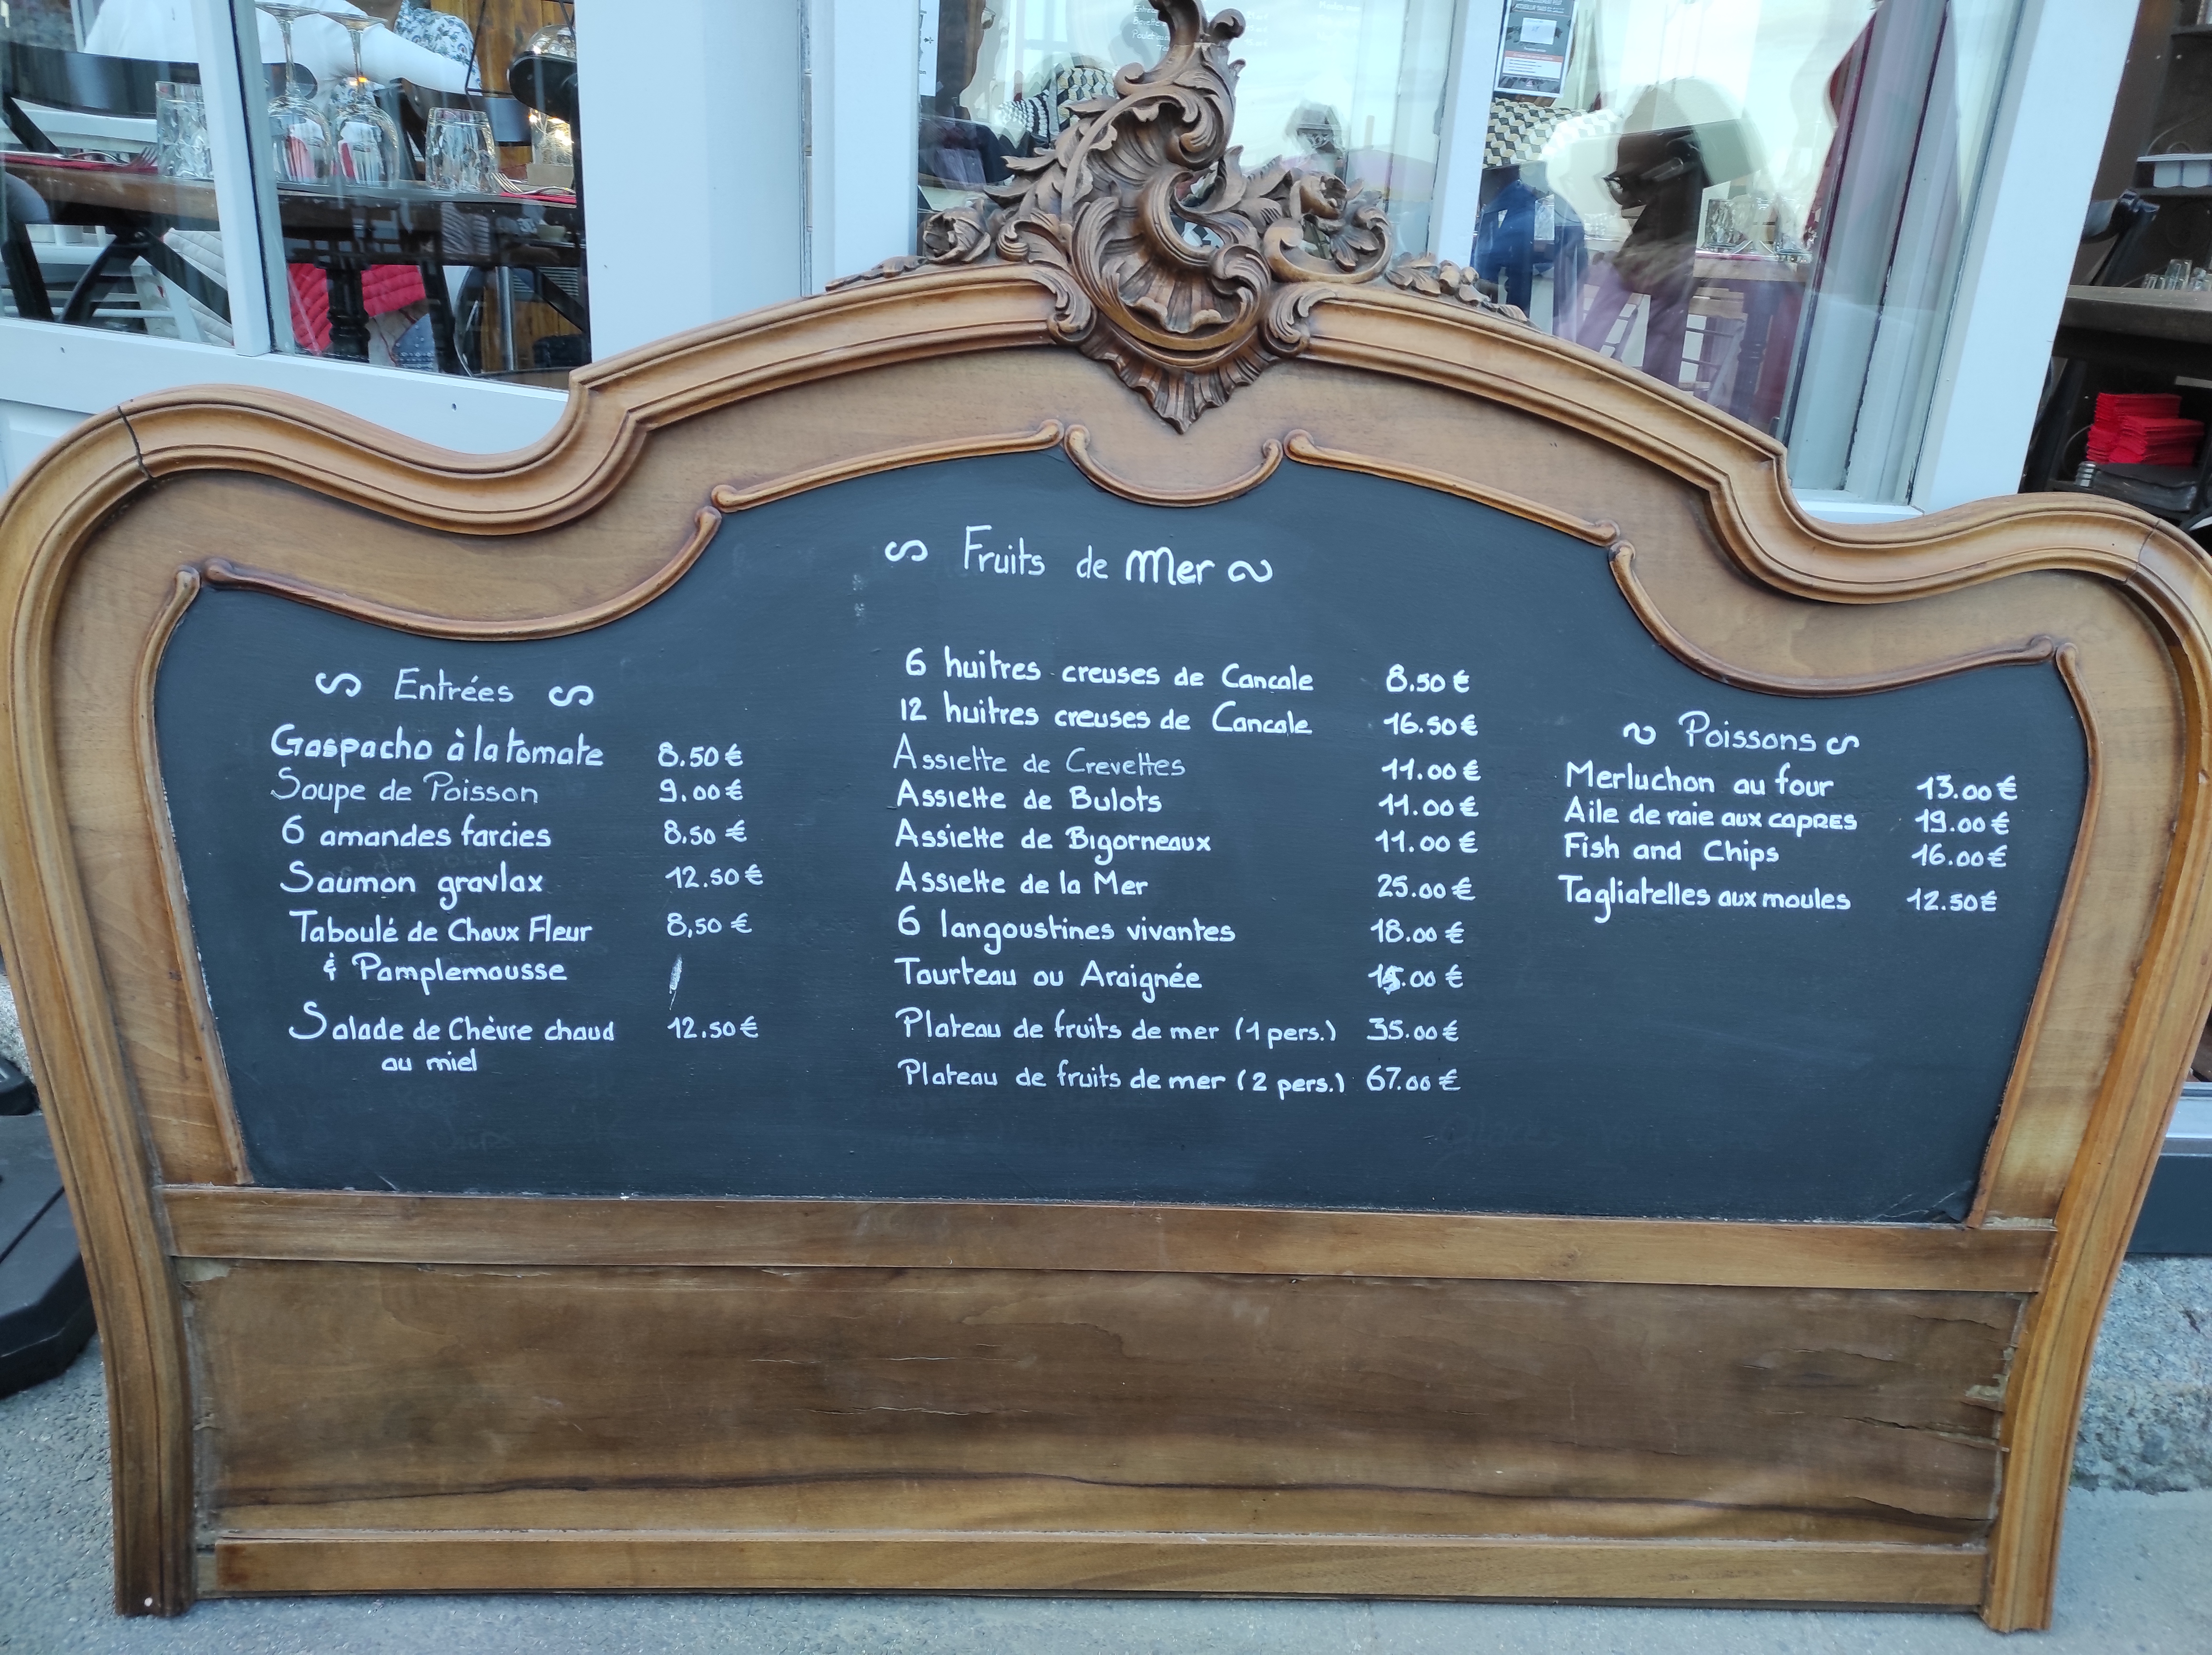 Fruits de Mer
Entrées
Gaspacho à la tomate 8.50 €
Soupe de Poisson 9.00 €
6 amandes farcies 8,50 €
Saumon gravlax 12.50 €
Taboulé de Choux Fleur 8,50 €
& Pamplemousse
Salade de Chèvre chaud 12.50 €
au miel
6 huitres creuses de Cancale 8.50 €
12 huitres creuses de Cancale 16.50 €
Assiette de Crevettes 11.00 €
Assiette de Bulots 11.00 €
Assiette de Bigorneaux 11.00 €
Assiette de la Mer 25.00 €
6 langoustines vivantes 18.00 €
Tourteau ou Araignée 15.00 €
Plateau de fruits de mer (1 pers.) 35.00 €
Plateau de fruits de mer (2 pers.) 67.00 €
Poissons
Merluchon au four 13.00 €
Aile de raie aux capres 19.00 €
Fish and Chips 16.00 €
Tagliatelles aux moules 12.50 €